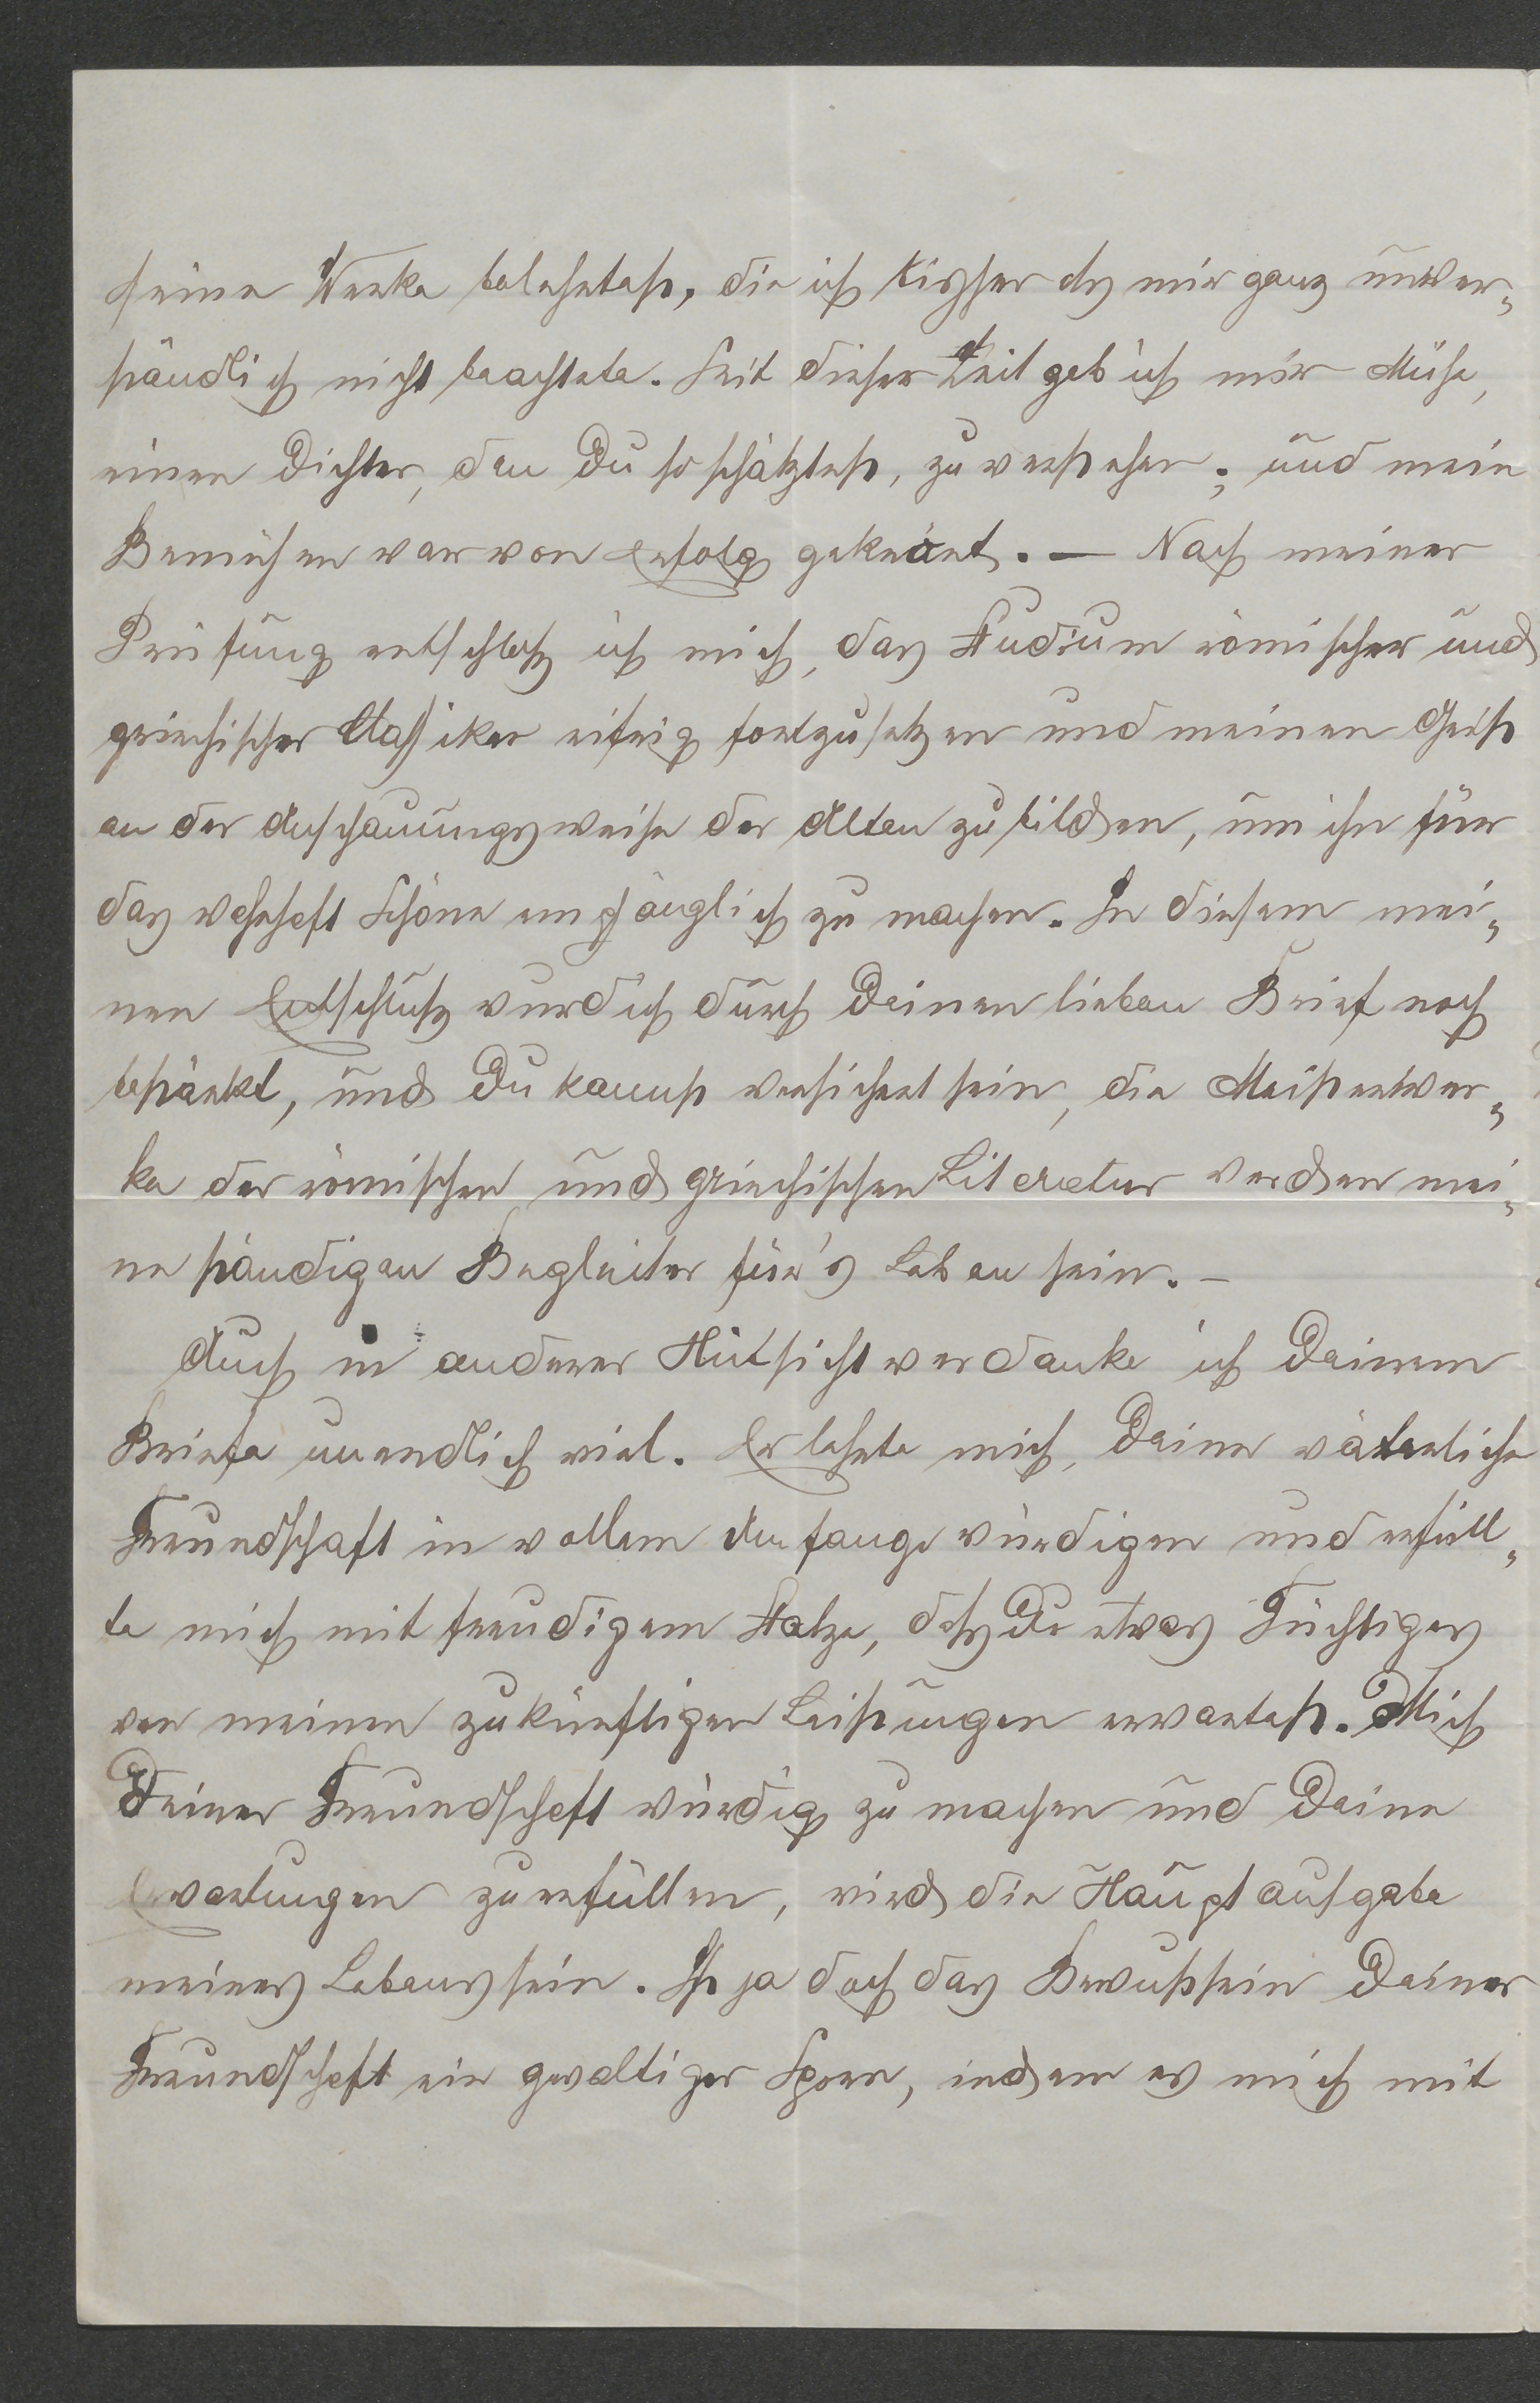 seine Werke belehrtest, die ich bisher als mir ganz unver-
ständlich nicht beachtete. Seit dieser Zeit gab ich mir Mühe,
einen Dichter, den Du so schätztest, zu verstehen; und mein
Bemühen war von Erfolg gekrönt. — Nach meiner
Prüfung entschloß ich mich, das Studium römischer und
griechischer Classiker eifrig fortzusetzen und meinen Geist
an der Anschauungsweise der Alten zu bilden, um ihn für
das wahrhaft Schöne empfänglich zu machen. In diesem mei-
nen Entschluß wurd' ich durch Deinen lieben Brief noch
bestärkt, und Du kannst versichert sein, die Meisterwer-
ke der römischen und griechischen Literatur werden mei-
ne ständigen Begleiter für's Leben sein. –
Auch in anderer Hinsicht verdanke ich Deinem
Briefe unendlich viel. Er lehrte mich, Deine väterliche
Freundschaft in vollem Umfange würdigen und erfüll-
te mich mit freudigem Stolze, daß Du etwas Tüchtiges
von meinen zukünftigen Leistungen erwartest. Mich
Deiner Freundschaft würdig zu machen und Deine
Erwartungen zu erfüllen, wird die Hauptaufgabe
meines Lebens sein. Ist ja doch das Bewußtsein Deiner
Freundschaft ein gewaltiger Sporn, indem es mich mit